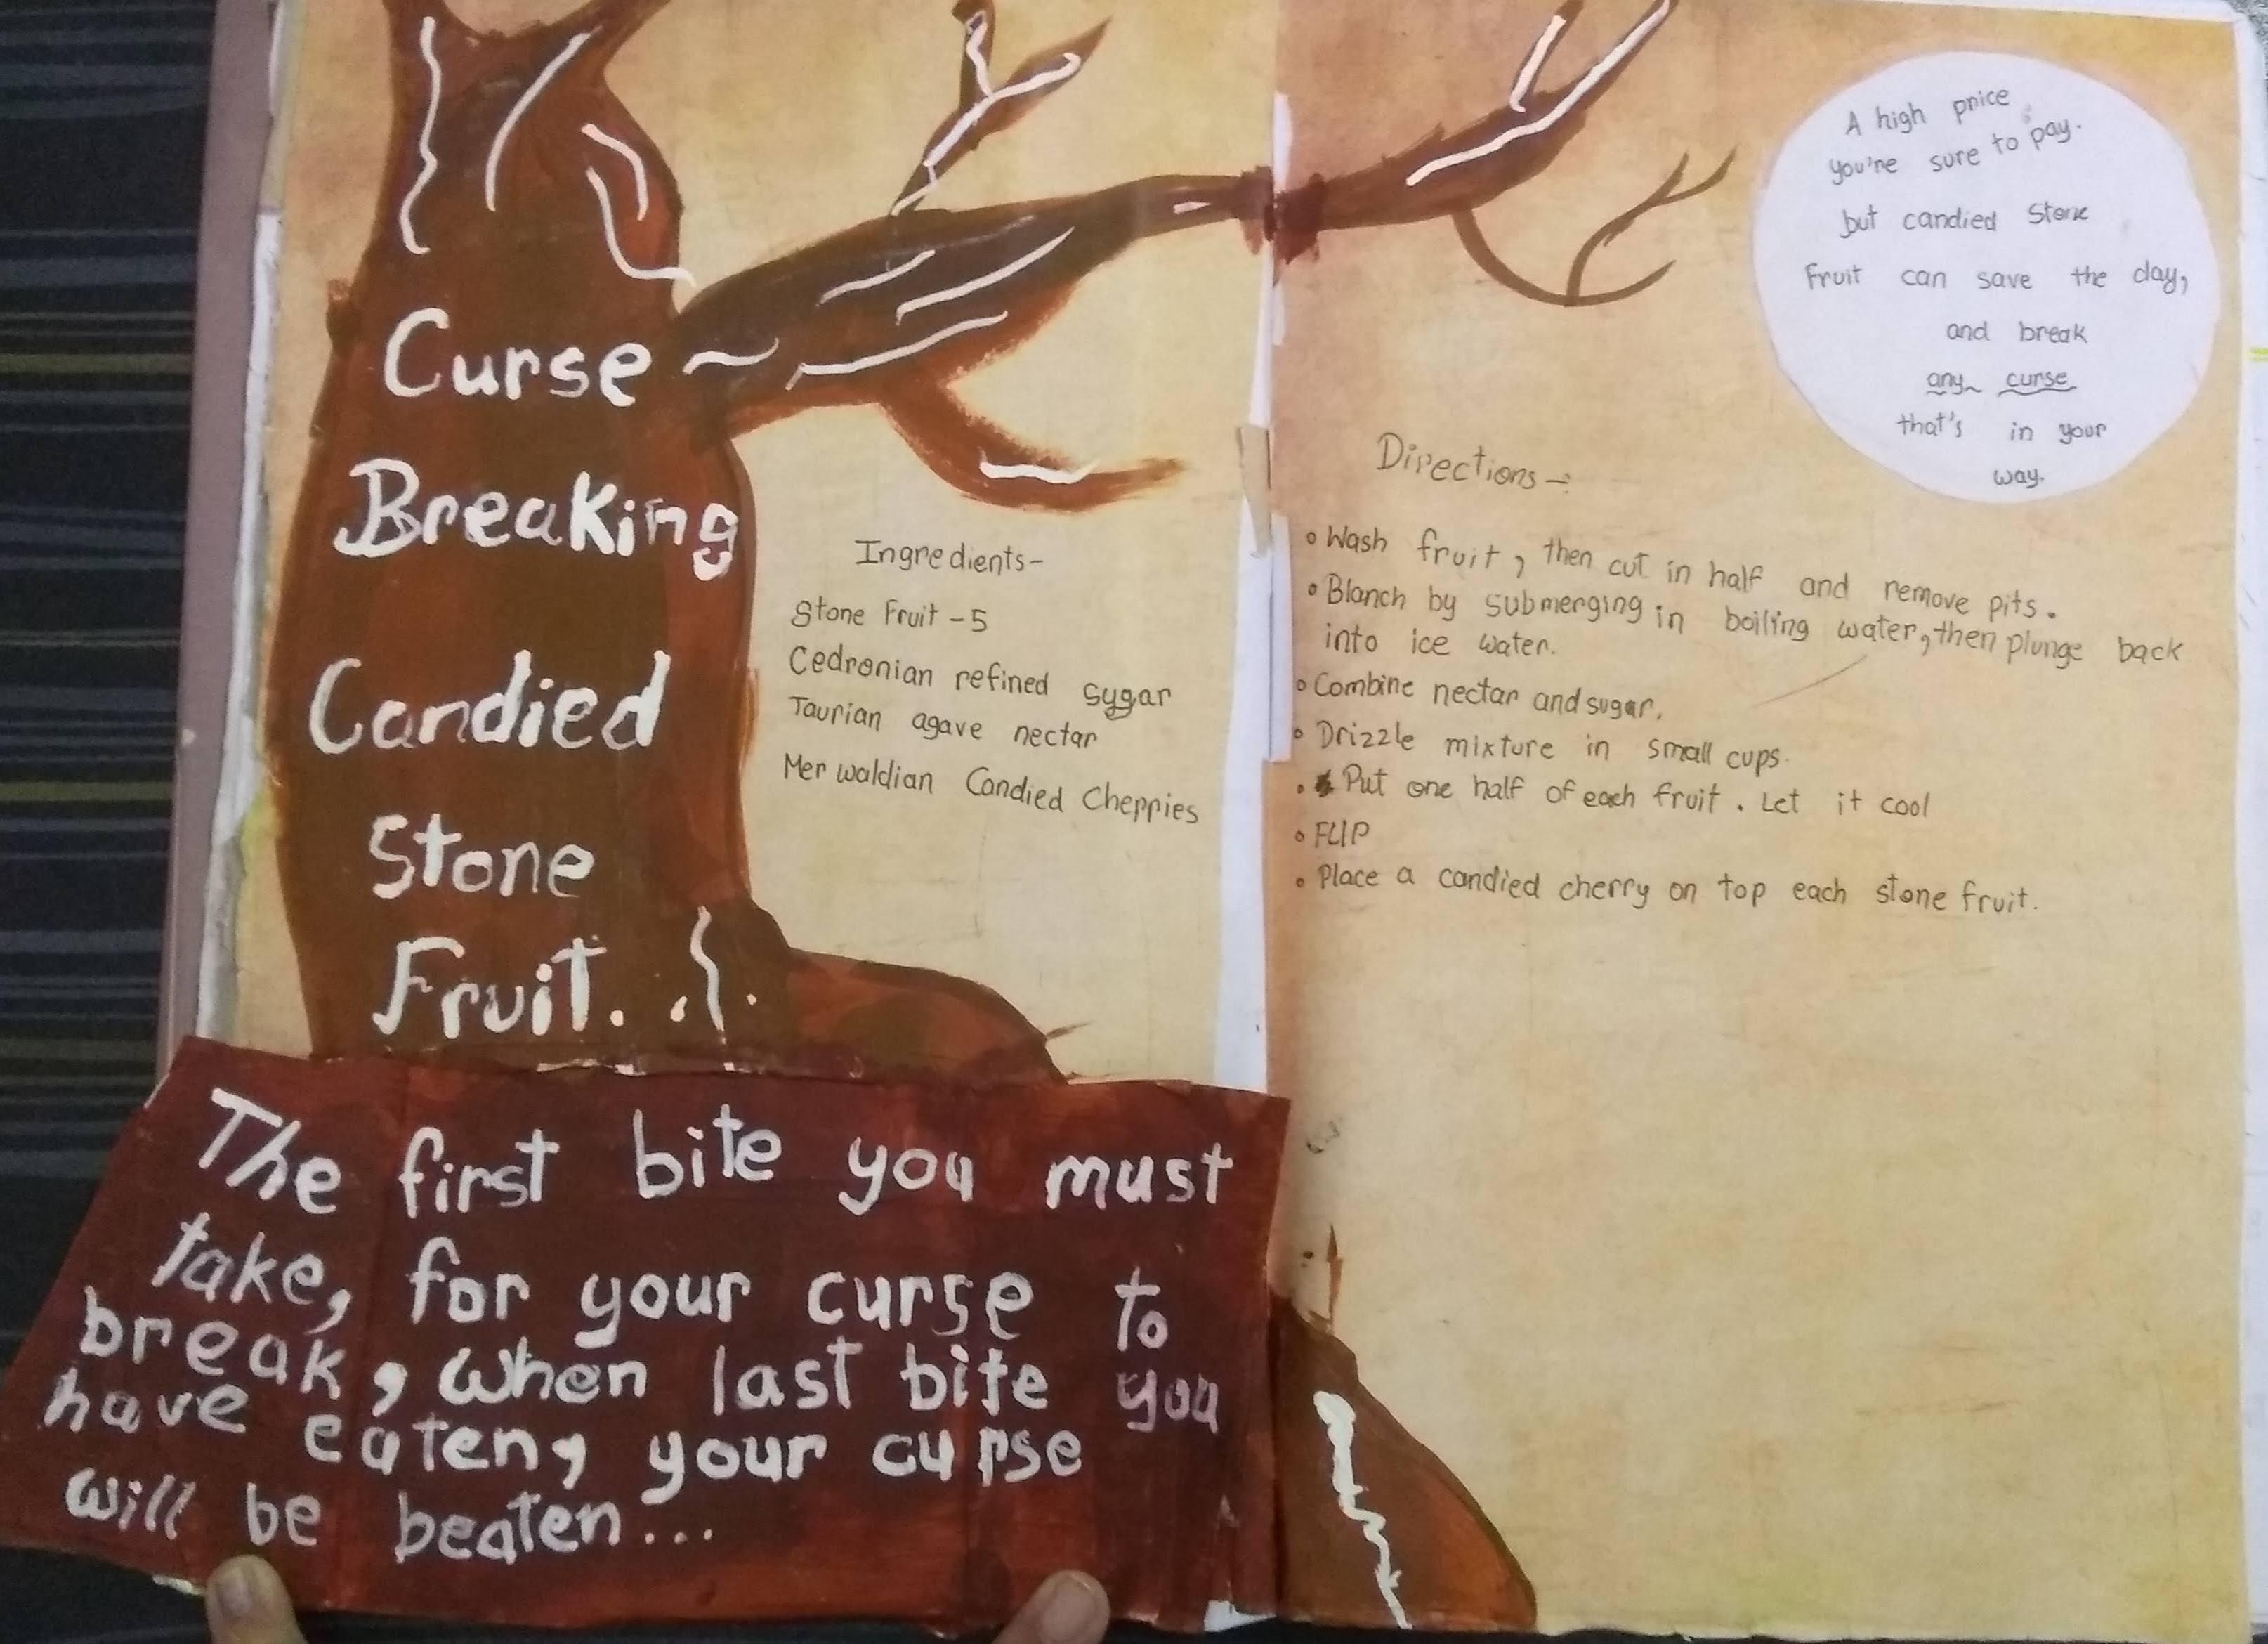 Curse
Breaking
Candied
Stone
Fruit.
Ingredients-
Stone Fruit - 5
Cedronian refined sugar
Taurian agave nectar
Mer waldian Candied Cherries
The first bite you must
take, for your curse to
break, when last bite you
have eaten, your curse
will be beaten...
A high price
you're sure to pay.
but candied Stone
Fruit can save the day,
and break
any curse
that's in your
way.
Directions -:
Wash fruit, then cut in half and remove pits.
Blanch by submerging in boiling water, then plunge back
into ice water.
Combine nectar and sugar.
Drizzle mixture in small cups.
Put one half of each fruit. Let it cool
FLIP
Place a candied cherry on top each stone fruit.